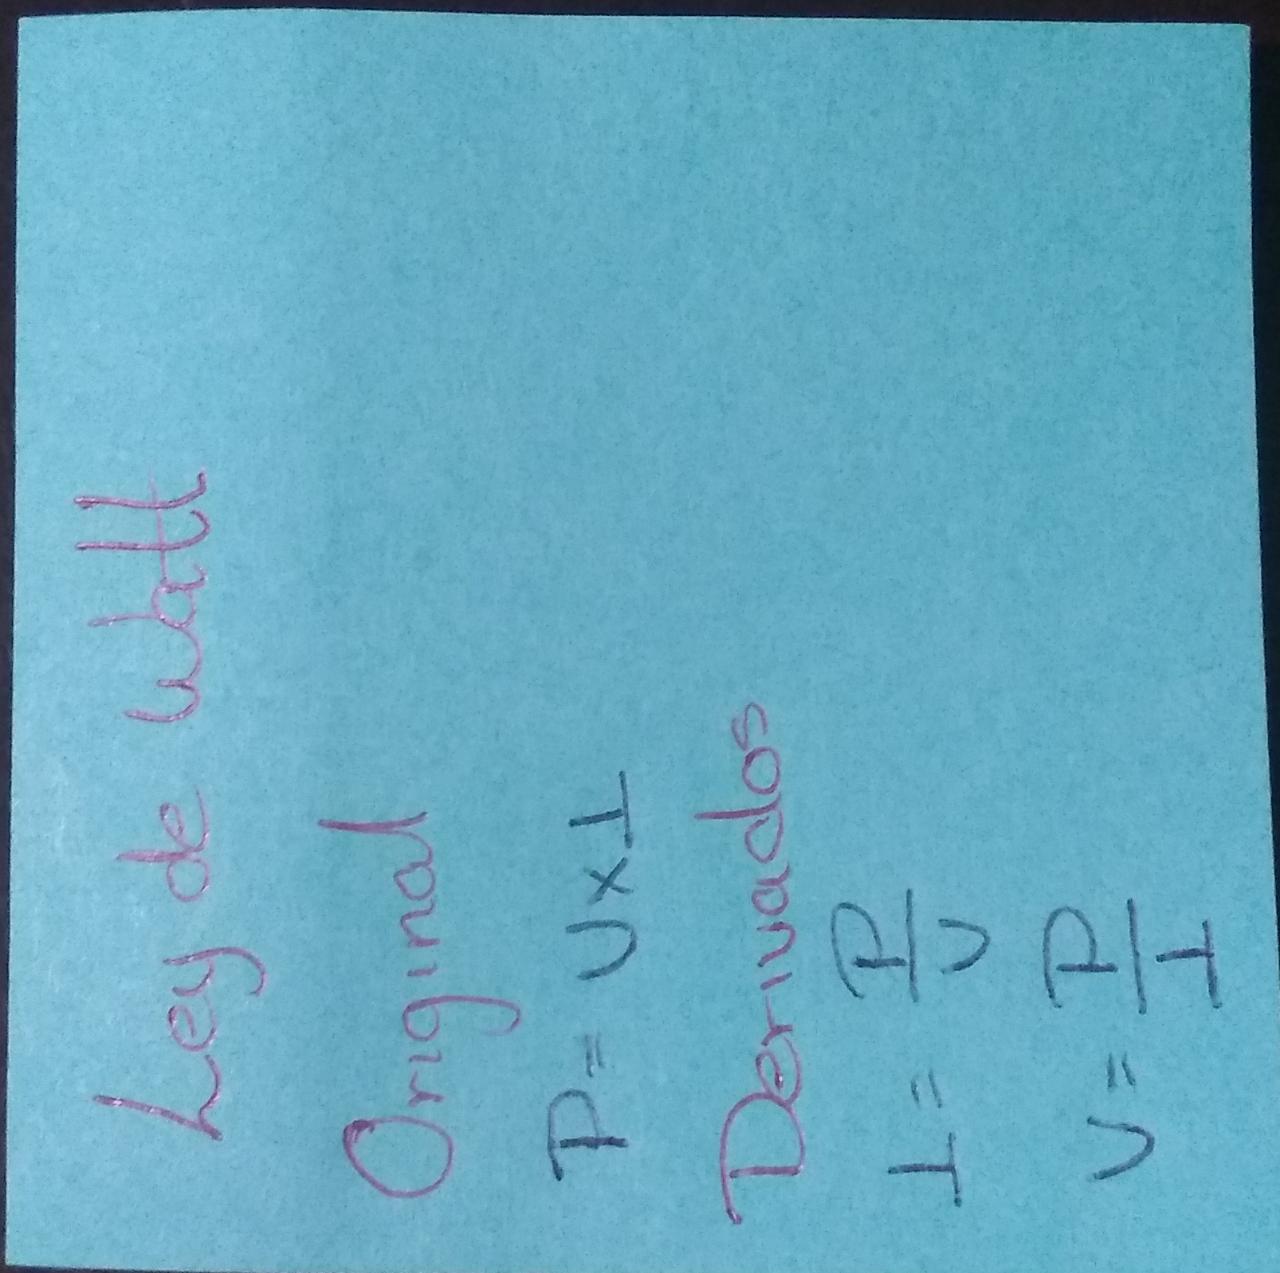 Ley de Watt
Original
P= V x I
Derivados
I = P/V
V = P/I